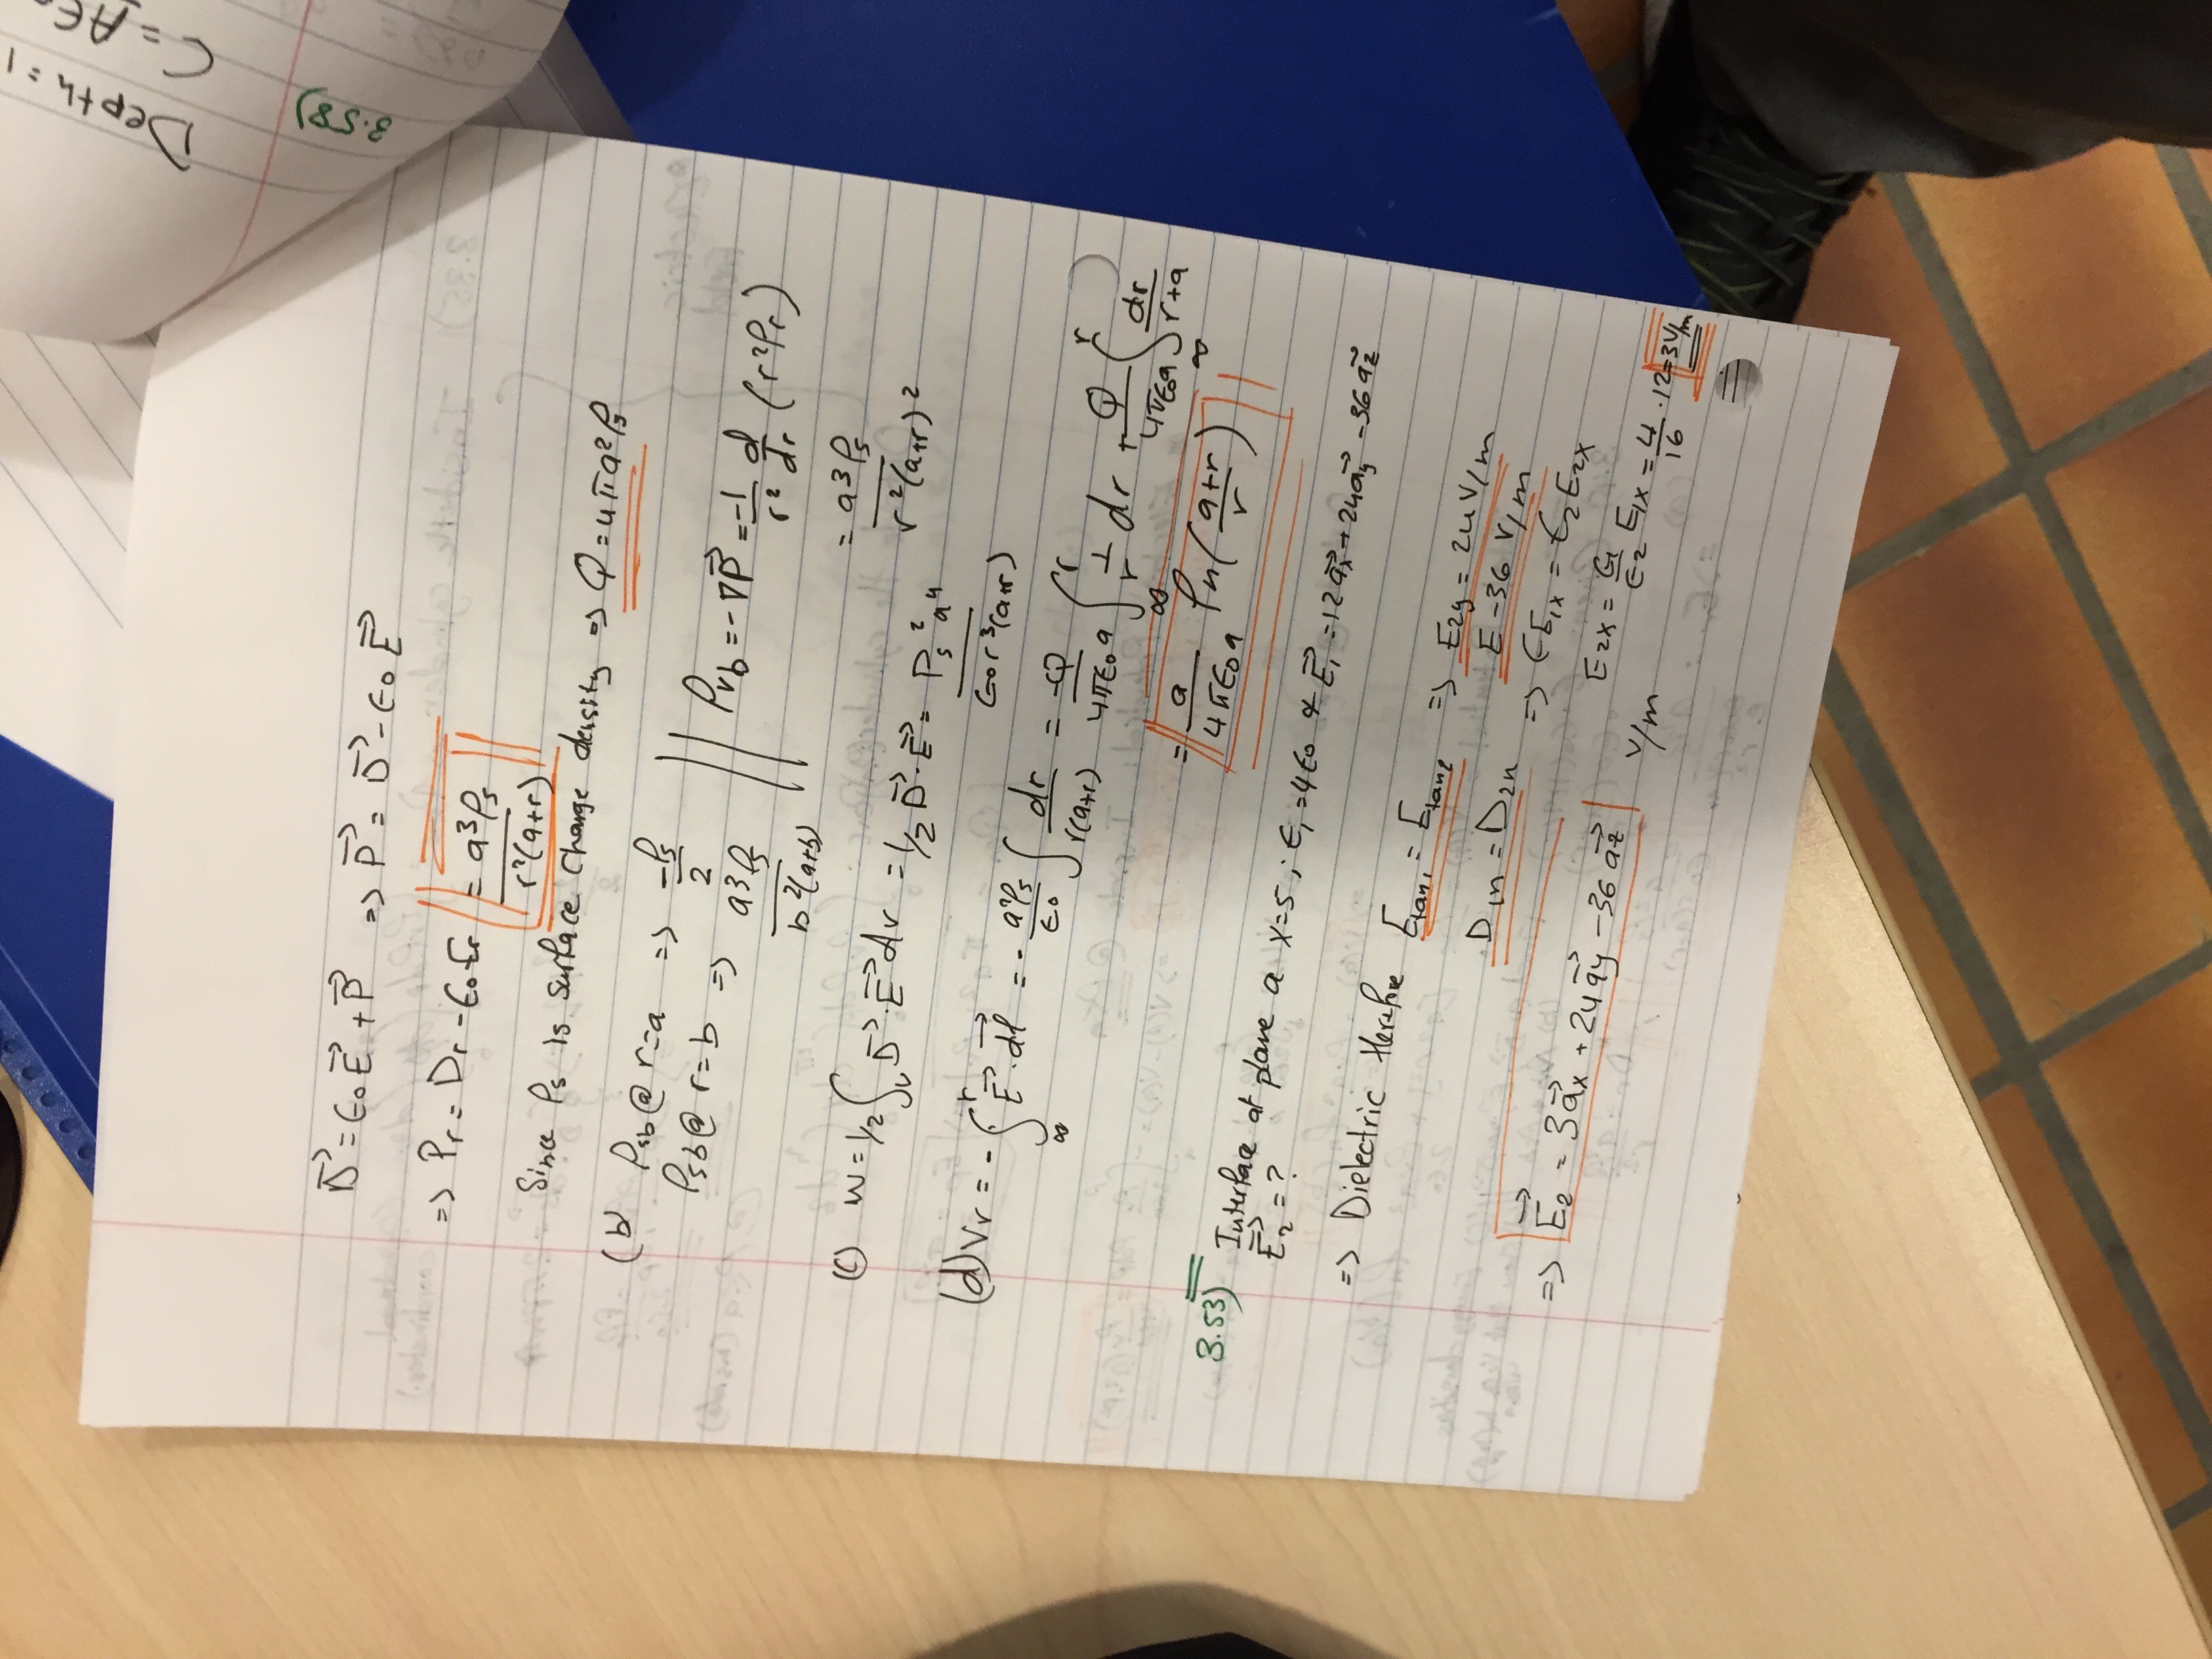 D⃗ = ϵ₀E⃗ + P⃗ => P⃗ = D⃗ - ϵ₀E⃗
=> Pr = Dr - ϵ₀Er = a³ρs / r²(a+r)
Since ρs is surface charge density => Q = 4πa²ρs
(b) ρsb @ r=a => -ρs/2 || ρvb = -∇P⃗ = -1/r² d/dr (r²Pr)
ρsb @ r=b => a³ρs / b²(a+b) = a³ρs / r²(a+r)²
(c) W = 1/2 ∫v D⃗·E⃗ dv = 1/2 D⃗·E⃗ = ρs²a⁴ / ϵ₀r³(a+r)
(d) Vr = - ∫∞^r E⃗·dl⃗ = - a²ρs/ϵ₀ ∫ dr / r(a+r) = -Q/4πϵ₀a ∫∞^r 1/r dr + Q/4πϵ₀a ∫∞^r dr/r+a
= Q/4πϵ₀a ln(a+r / r)
3.53) Interface at plane a x=5; ϵ₁=4ϵ₀ & E⃗₁=12a⃗x+24a⃗y-36a⃗z
E⃗₂=?
=> Dielectric Herefre Etan₁ = Etan₂ => E2y = 24V/m
E -36 V/m
D1n = D2n => ϵE1x = ϵ₂E2x
E2x = ϵ₁/ϵ₂ E1x = 4/16 · 12 = 3V/m
=> E⃗₂ = 3a⃗x + 24a⃗y - 36a⃗z V/m
3.58)
Depth = 1
C = Aϵ